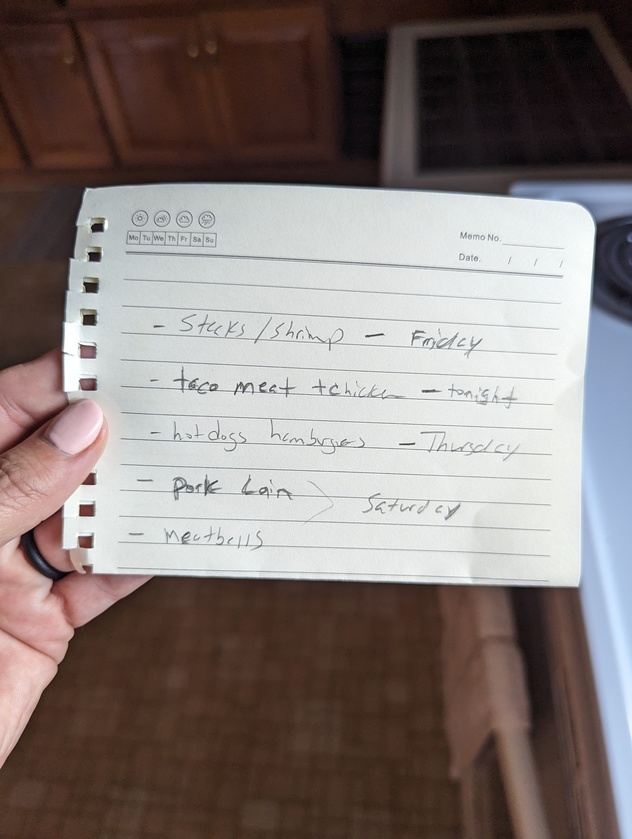 Mo Tu We Th Fr Sa Su
Memo No.
Date. / / /
- Steaks/shrimp - Friday
- taco meat + chicken - tonight
- hotdogs hamburgers - Thursday
- Pork Loin
Saturday
- meatballs